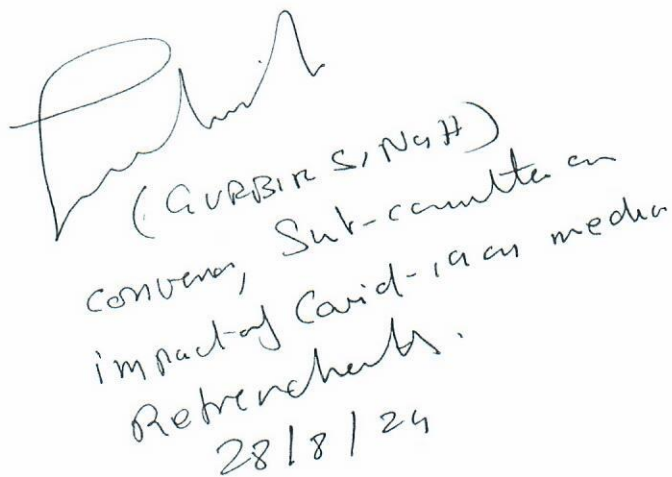 (GURBIR SINGH)
Convenor, Sub-committee on
impact of Covid-19 on media
Retrenchments.
28/8/24